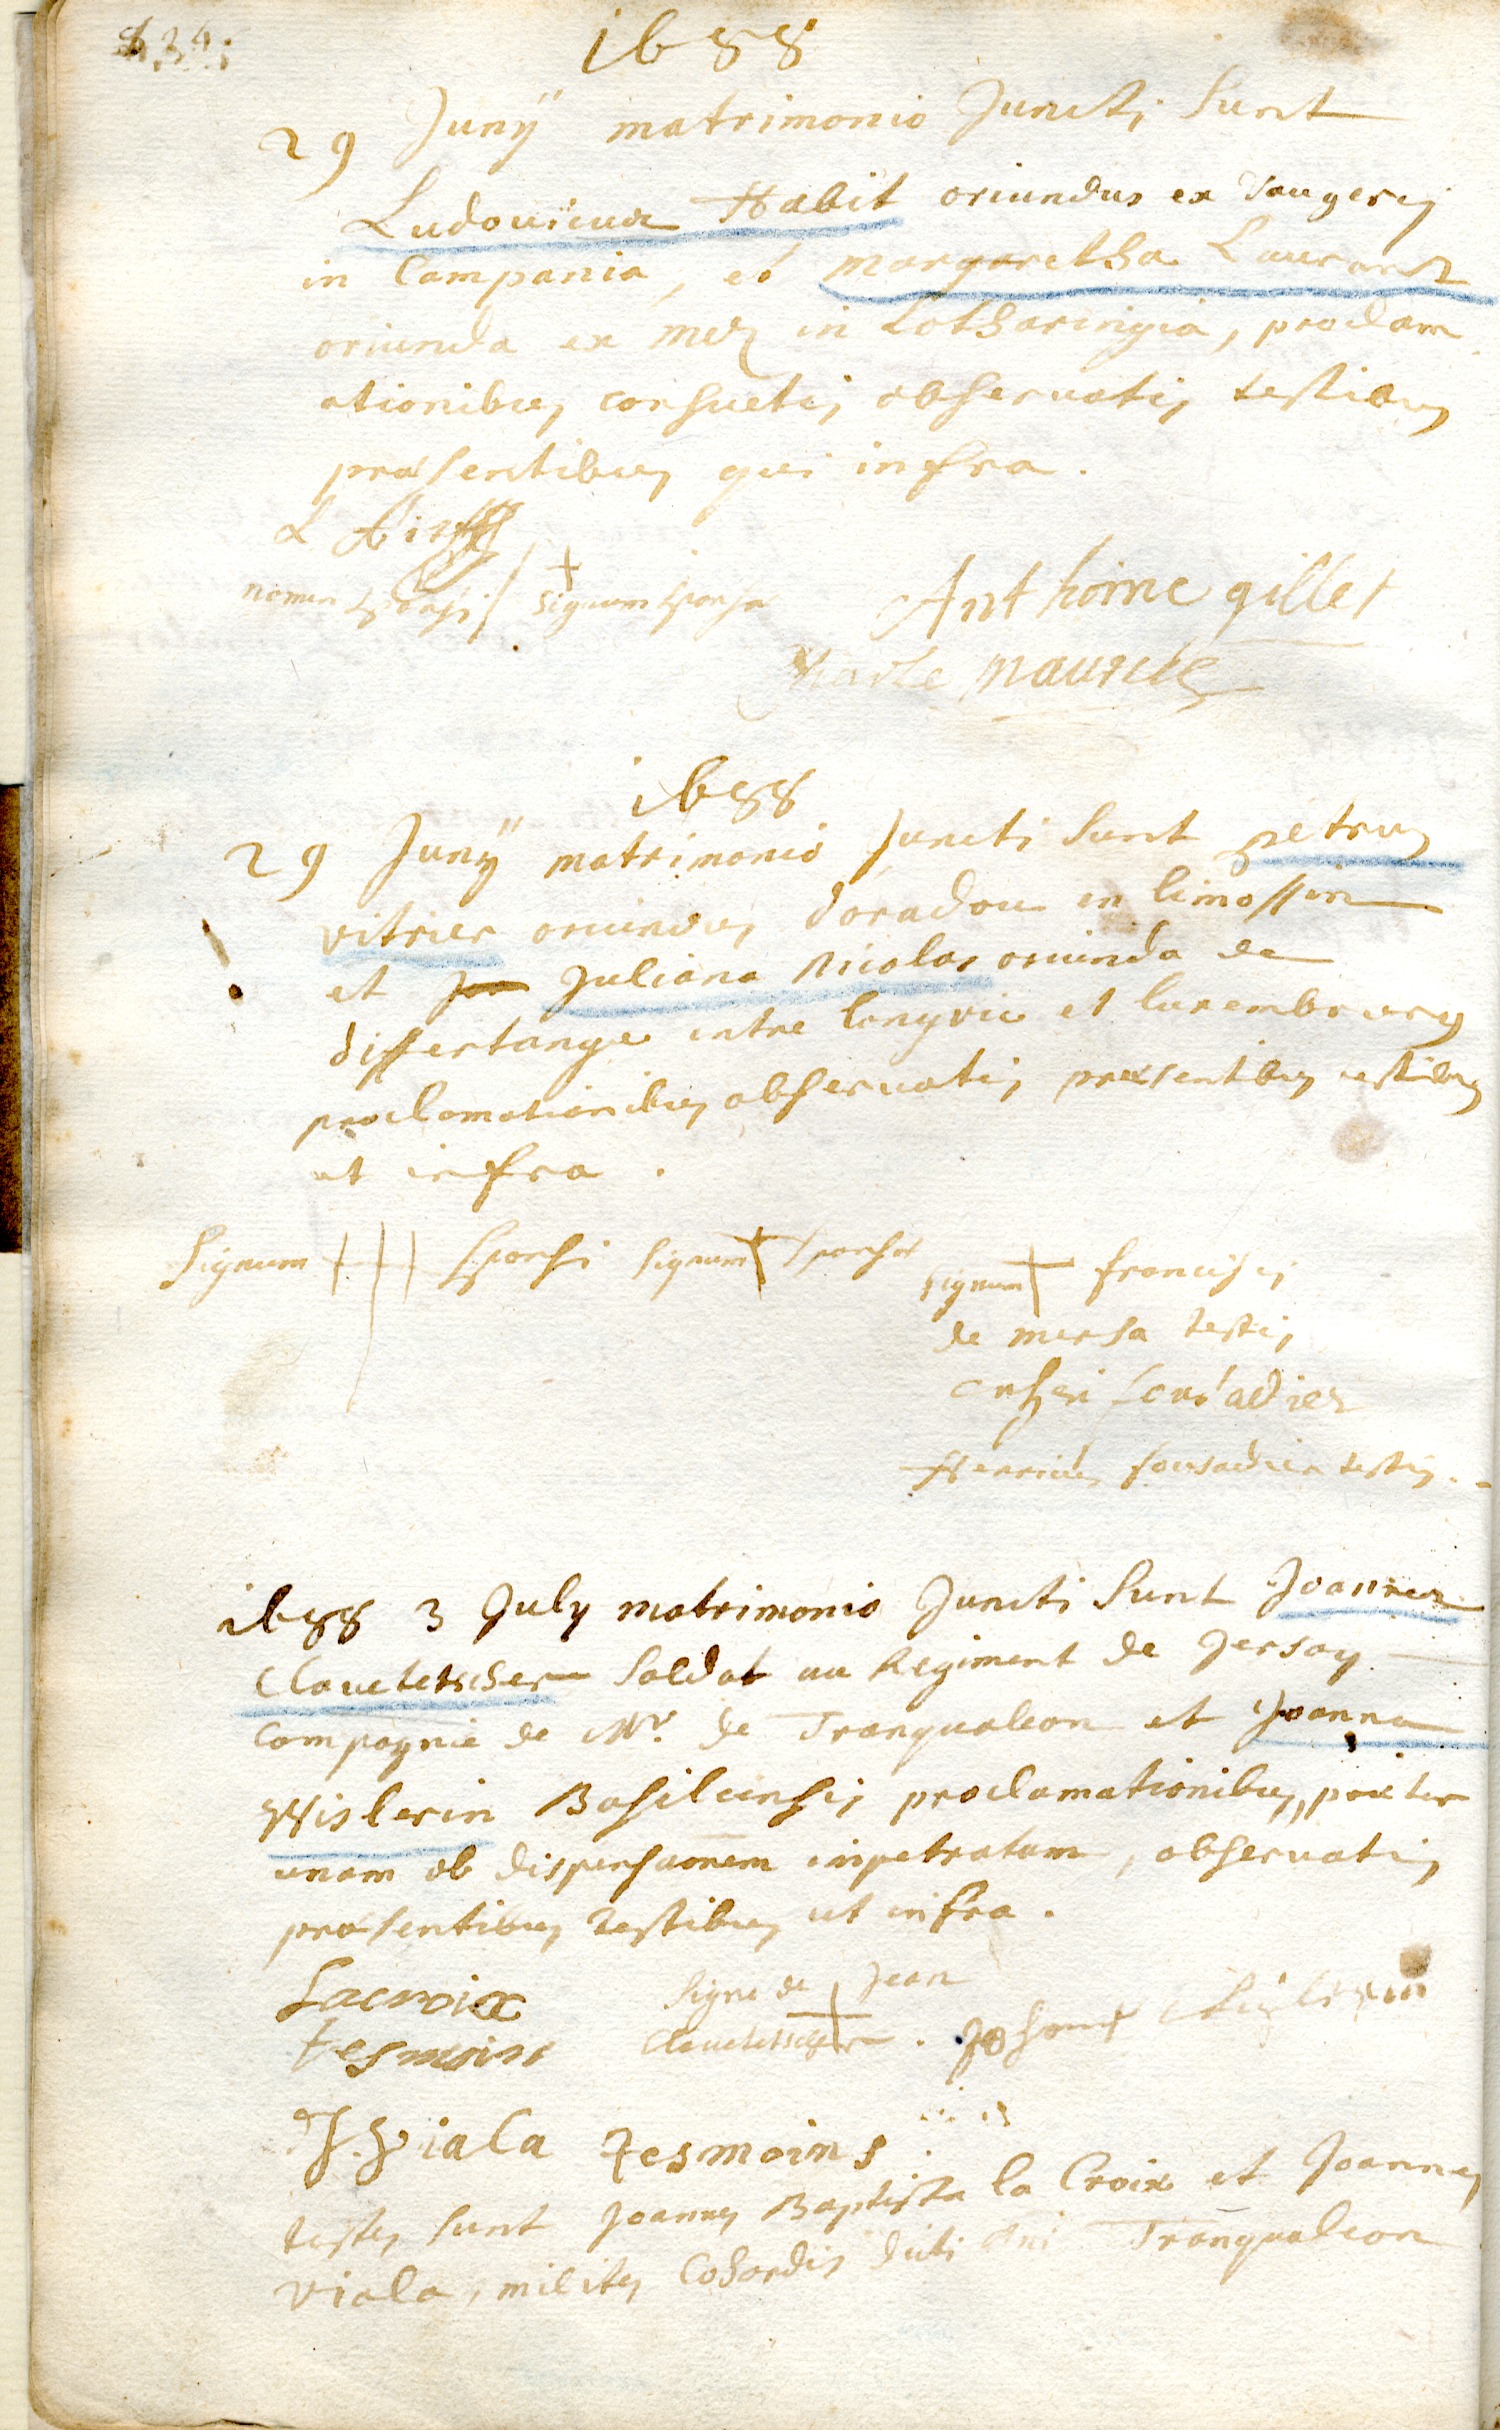 1688
29 Junÿ matrimonio Juncti Sunt
Ludouicus Habit oriundus ex
in Campania, et margaretha Laurant
oriunda ex metz in Lotharingia, proclam
ationibus consuetis obseruatis testibus
præsentibus qui infra.
L
nomen sponsi / + signum sponsæ
Anthoine gillet
Charle maurice
1688
29 Junÿ matrimonio Juncti Sunt petrus
vitrier oriundus doradou in limossin
et Juliana Nicolas oriunda de
differtange entre longvic et luxembourg
proclamationibus obseruatis præsentibus testibus
ut infra.
Signum sponsi signum + sponsæ
signum + francisci
de mersa testis
fousadier
Henricus fousadier testis.
1688 3 July matrimonio Juncti Sunt Joannes
Clauetetscher Soldat au Regiment de Jersay
Compagnie de Mr. de Tranqualeon et Joanna
Wislerin Basileensis proclamationibus, præter
unam ob dispensationem inpetratam, obseruatis
præsentibus testibus ut infra.
Lacroix
tesmoins
Signe de + Jean
Clauetetscher.
J. Viala tesmoins
testes sunt Joannes Baptista la Croix et Joannes
Viala, milites Cohordis dicti Dni Tranqualeon